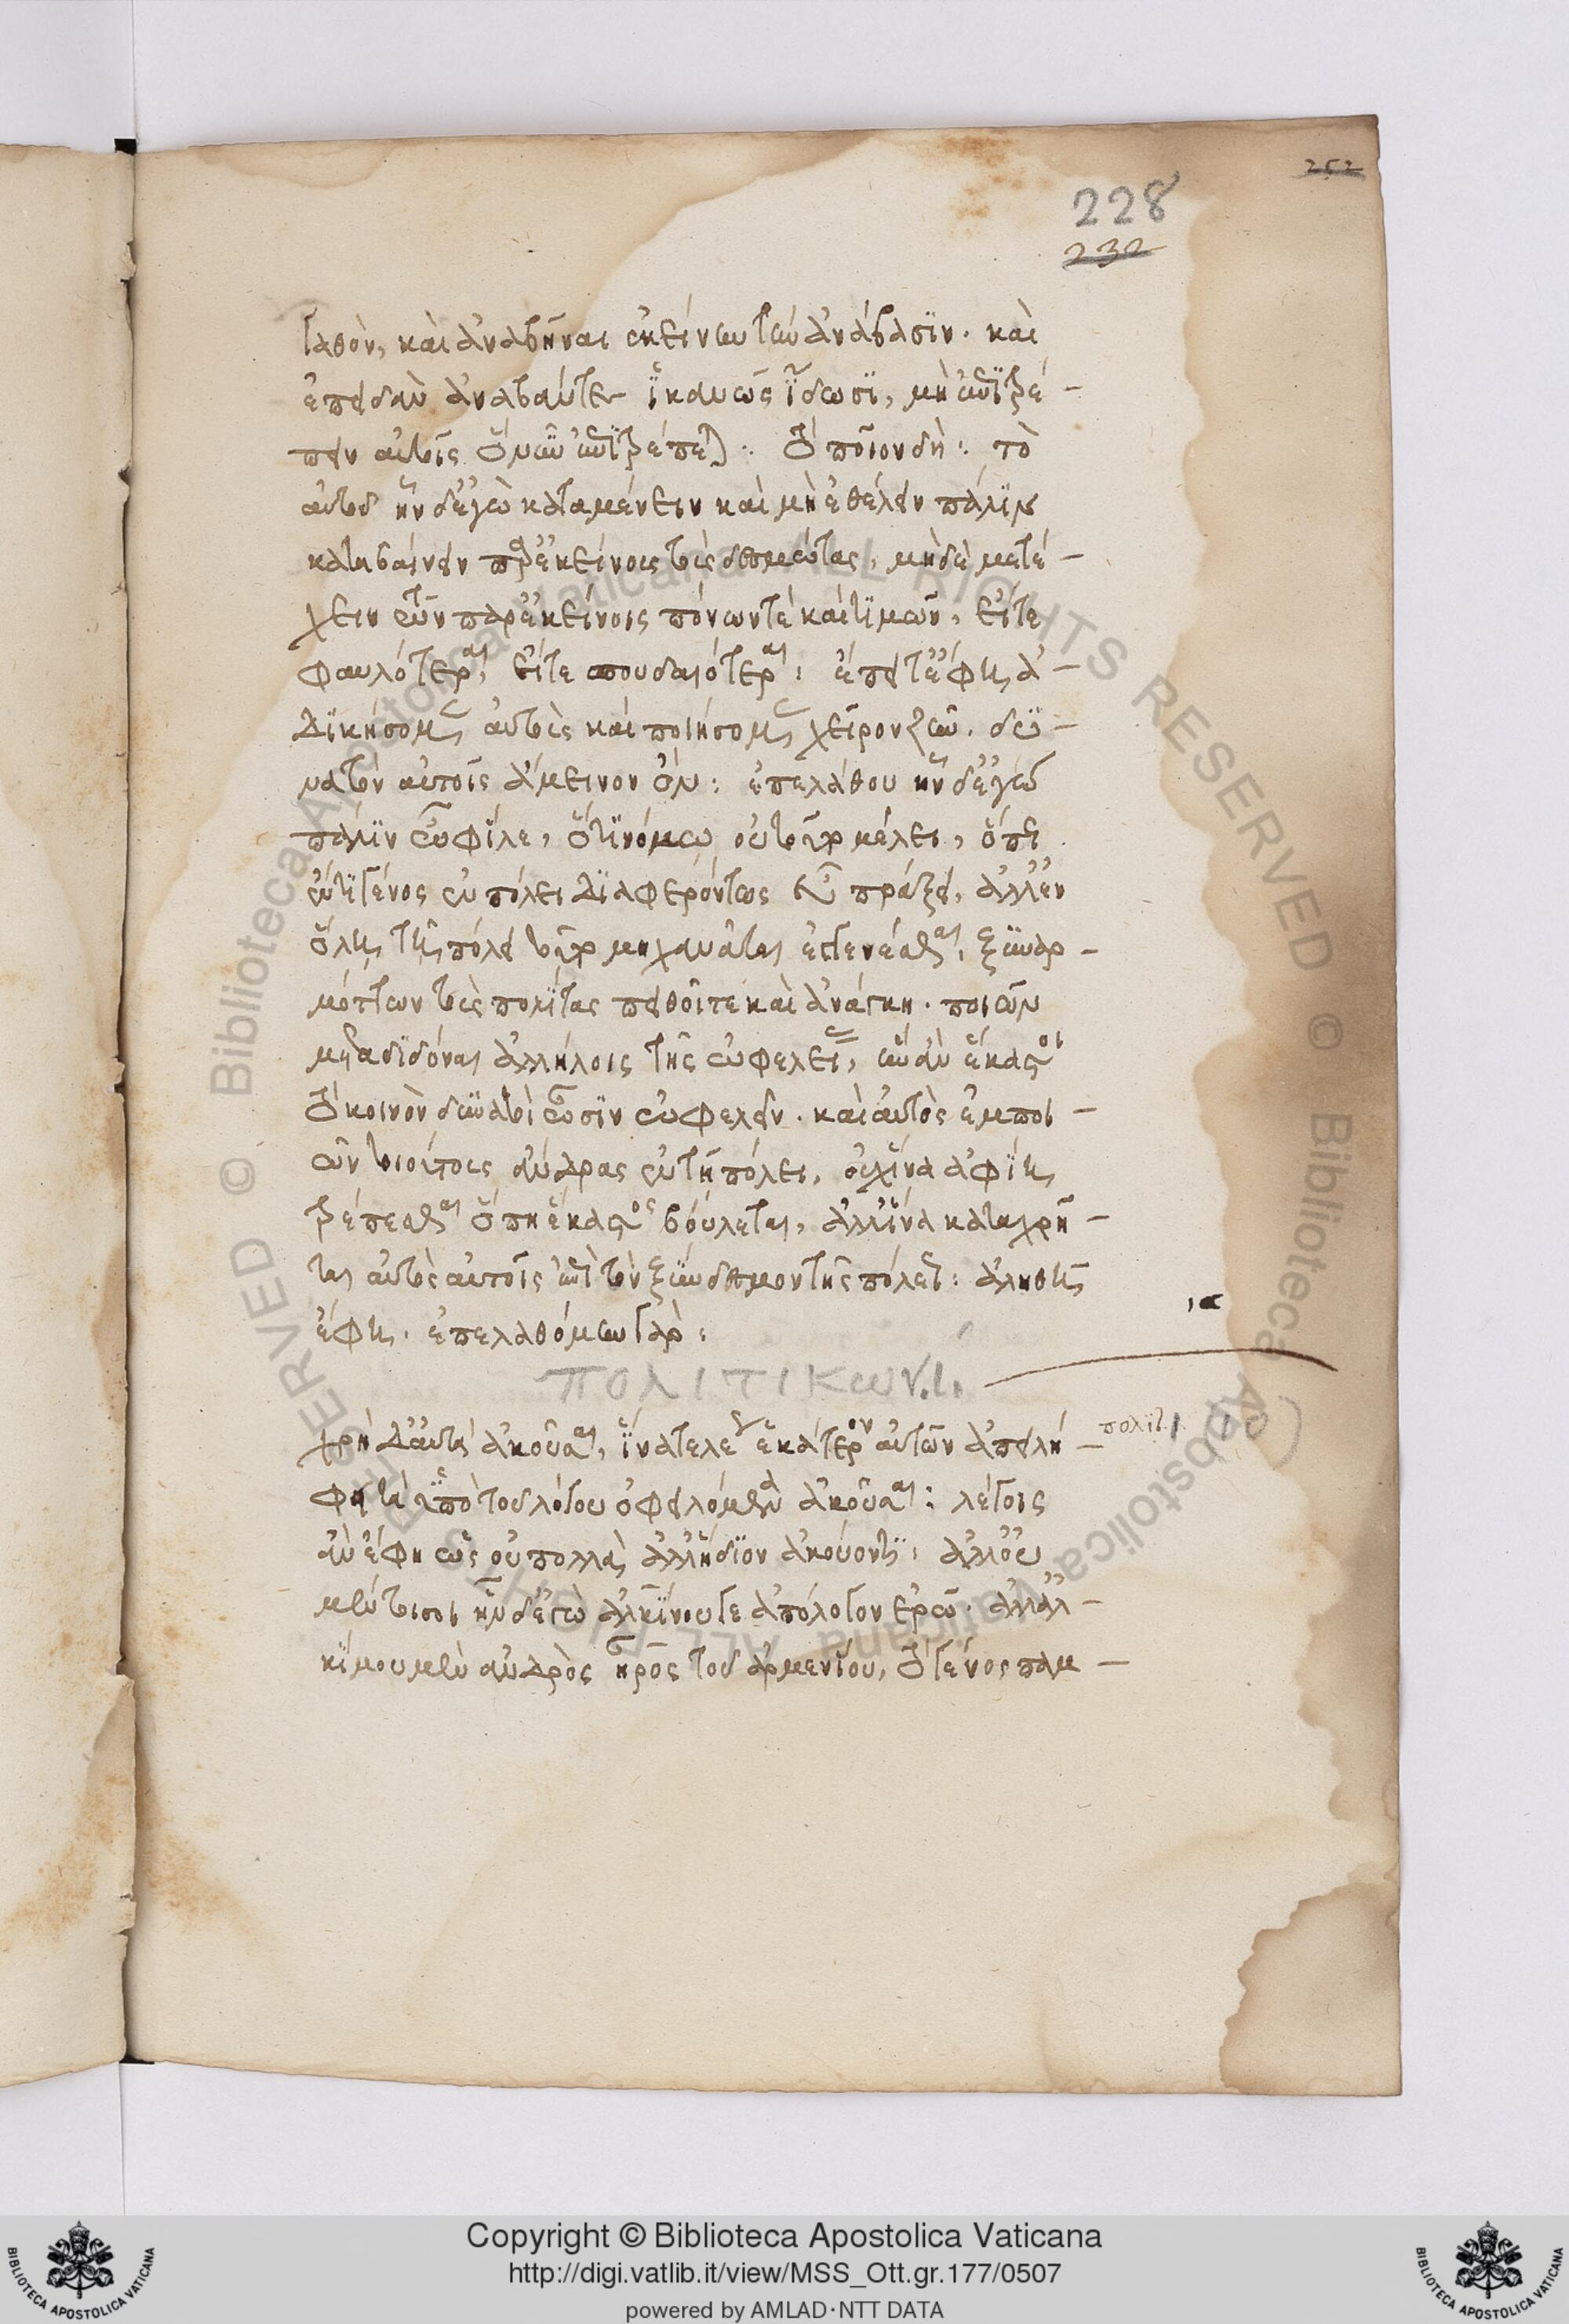 252
228
232
γαθὸν, καὶ ἀναβῆναι ἐκείνην τὴν ἀνάβασϊν. καὶ
ἐπειδὰν ἀναβάντες ἱ̈κανῶς ἴ̈δωσϊ, μὴ ἐπϊτρέ-
πειν αὐτοῖς ὃ νῦν ἐπϊτρέπεται: τὸ ποῖον δή: τὸ
αὐτοῦ ἦν δ' ἐγὼ καταμένειν καὶ μὴ ἐθέλειν πάλϊν
καταβαίνειν παρ' ἐκείνους τοὺς δεσμώτας, μηδὲ μετέ-
χειν τῶν παρ' ἐκείνοις πόνων τὲ καὶ τϊμῶν, εἴτε
φαυλότεραι, εἴτε σπουδαιότεραι: ἔπειτ' ἔφη, ἀ-
δϊκήσομεν αὐτοὺς καὶ ποιήσομεν χεῖρον ζῆν. δϋ-
νατὸν αὐτοῖς ἄμεινον ὂν: ἐπελάθου ἦν δ' ἐγὼ
πάλϊν ὦ φίλε, ὅτϊ νόμῳ οὐ τοῦτο μέλει, ὅπως
ἕν τϊ γένος ἐν πόλει δϊαφερόντως εὖ πράξει, ἀλλ' ἐν
ὅλῃ τῇ πόλει τοῦτο μηχανᾶται ἐγγενέσθαι, ξϋναρ-
μόττων τοὺς πολίτας πειθοῖ τε καὶ ἀνάγκῃ. ποιῶν
μεταδϊδόναι ἀλλήλοις τῆς ὠφελείας, ἣν ἂν ἕκαστοι
τὸ κοινὸν δϋνατοὶ ὦσϊν ὠφελεῖν. καὶ αὐτὸς ἐμποι-
ῶν τοιούτους ἄνδρας ἐν τῇ πόλει, οὐχ ἵνα ἀφϊῇ
τρέπεσθαι ὅπῃ ἕκαστος βούλεται, ἀλλ' ἵνα καταχρῆ-
ται αὐτὸς αὐτοῖς ἐπὶ τὸν ξύνδεσμον τῆς πόλεως: ἀληθῆ
ἔφη. ἐπελαθόμην γάρ:
ΠΟΛΙΤΙΚων. ί.
χρὴ δ' αὐτὰ ἀκοῦσαι, ἵ̈να τελέως ἑκάτερον αὐτῶν ἀπειλή-
φῃ τὰ ὑπὸ τοῦ λόγου ὀφειλόμενα ἀκοῦσαι: λέγοις
ἂν ἔφη ὡς οὐ πολλὰ ἄλλ' ἥδϊον ἀκούοντϊ: ἀλλ' οὐ
μέντοι σοι ἦν δ' ἐγὼ ἀλκΐνου γε ἀπόλογον ἐρῶ. ἀλλ' ἀλ-
κϊμου μὲν ἀνδρὸς ἠρὸς τοῦ ἀρμενίου, τὸ γένος παμ-
Copyright © Biblioteca Apostolica Vaticana
http://digi.vatlib.it/view/MSS_Ott.gr.177/0507
powered by AMLAD·NTT DATA
BIBLIOTECA APOSTOLICA VATICANA
BIBLIOTECA APOSTOLICA VATICANA